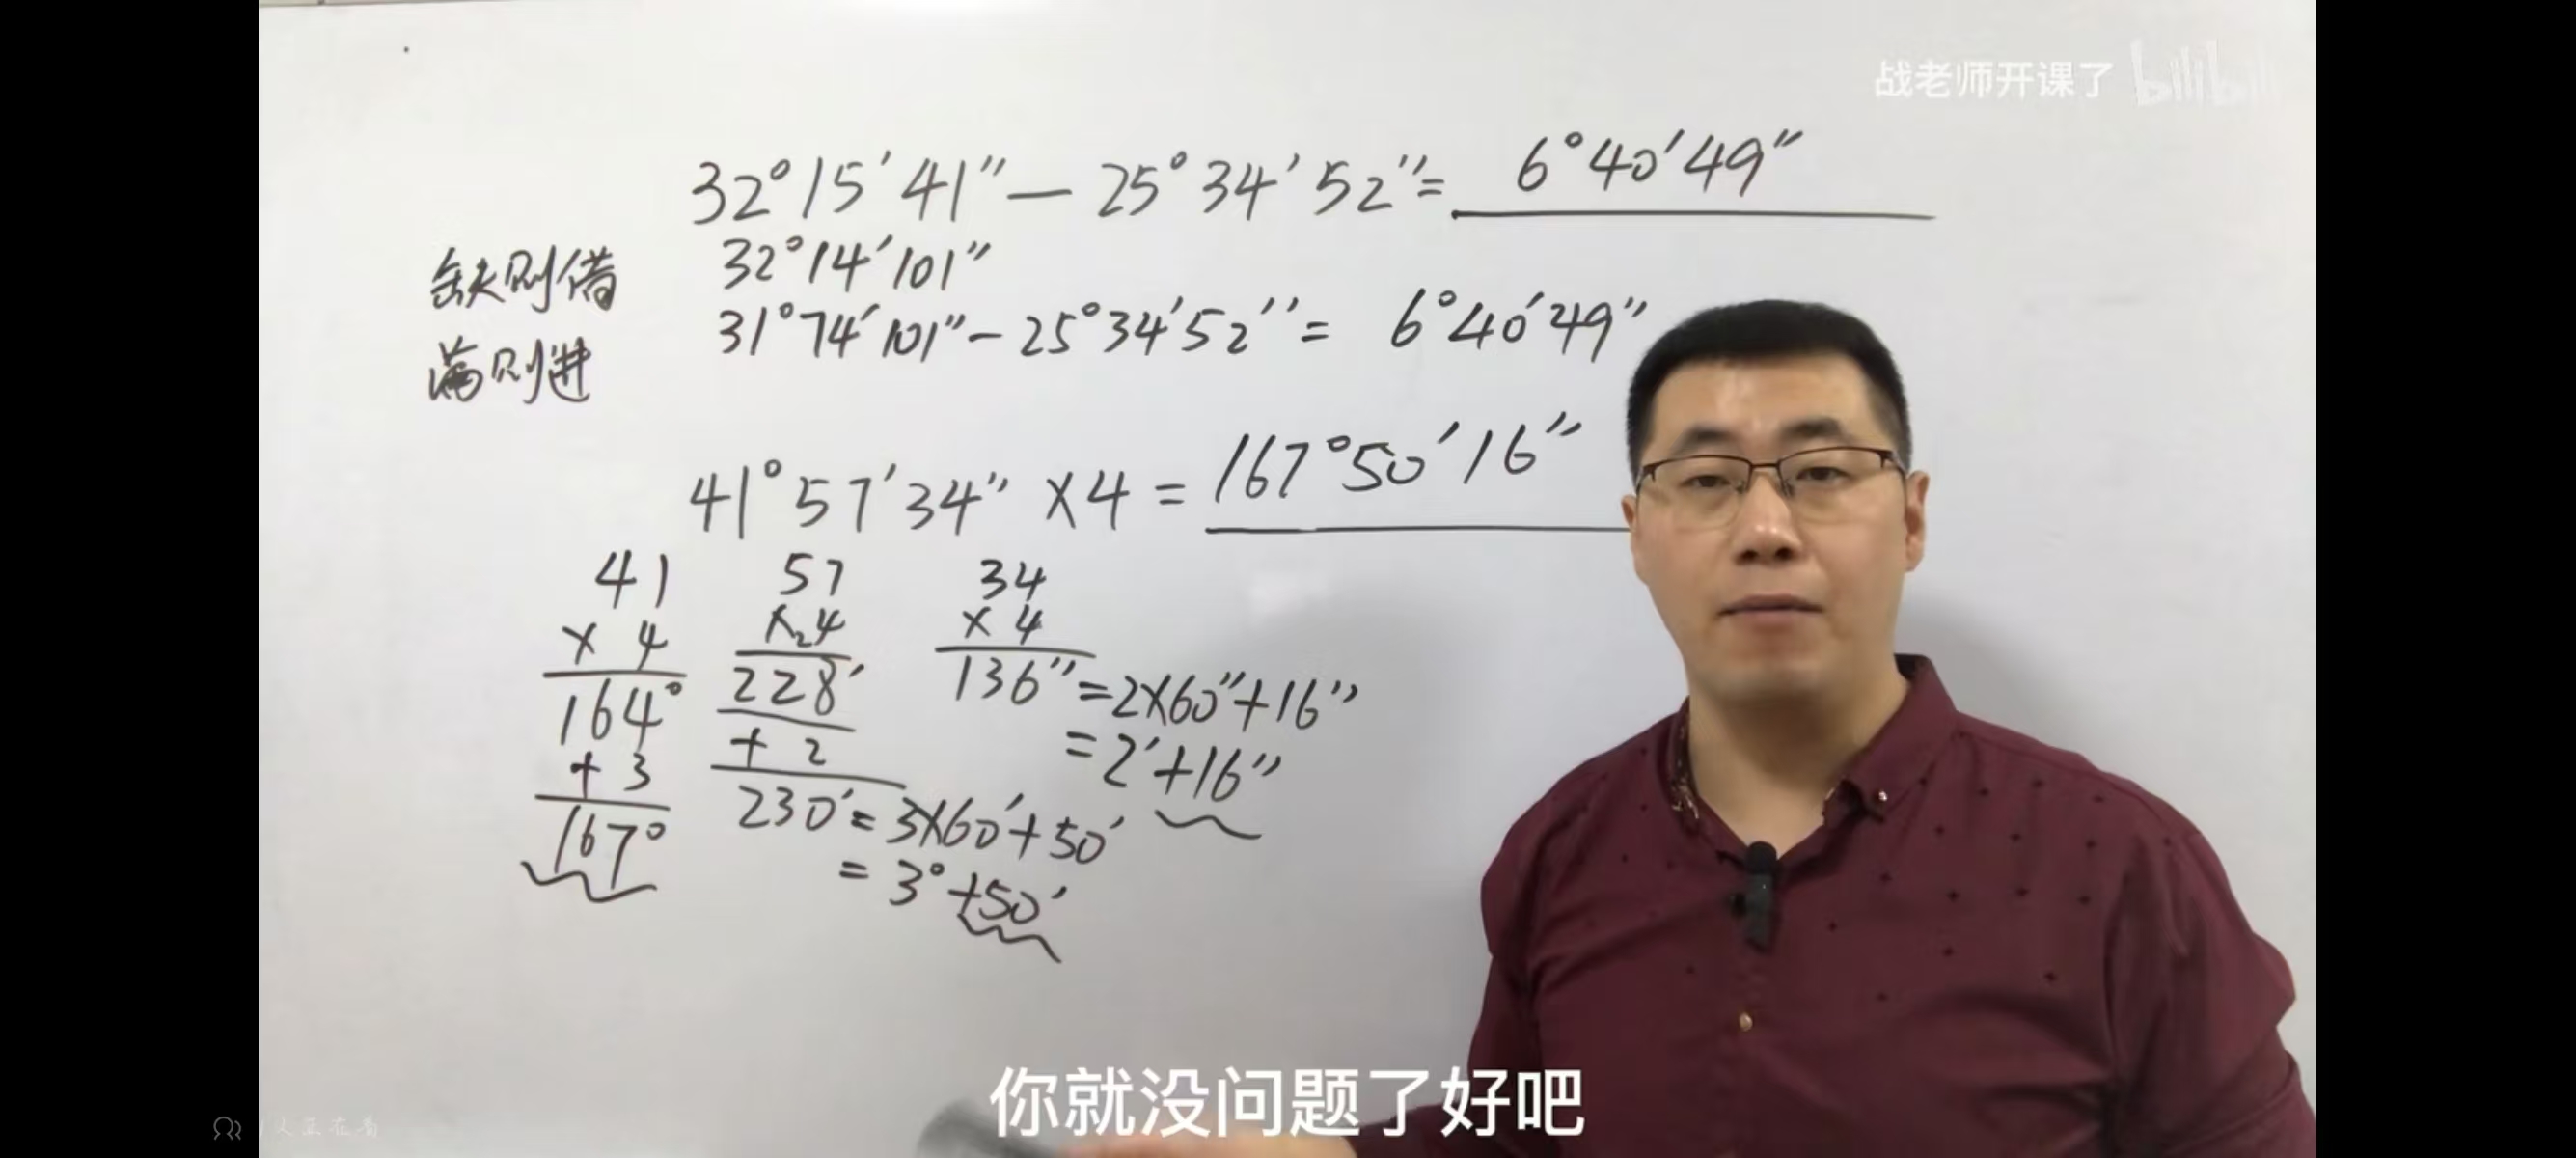 战老师开课了 bilibili
32°15′41″-25°34′52″= 6°40′49″
缺则借 32°14′101″
满则进 31°74′101″-25°34′52″= 6°40′49″
41°57′34″×4= 167°50′16″
41 57 34
×4 ×₂4 ×4
164° 228′ 136″=2×60″+16″
+3 +2 =2′+16″
167° 230′=3×60′+50′
=3°+50′
你就没问题了好吧
人正在看